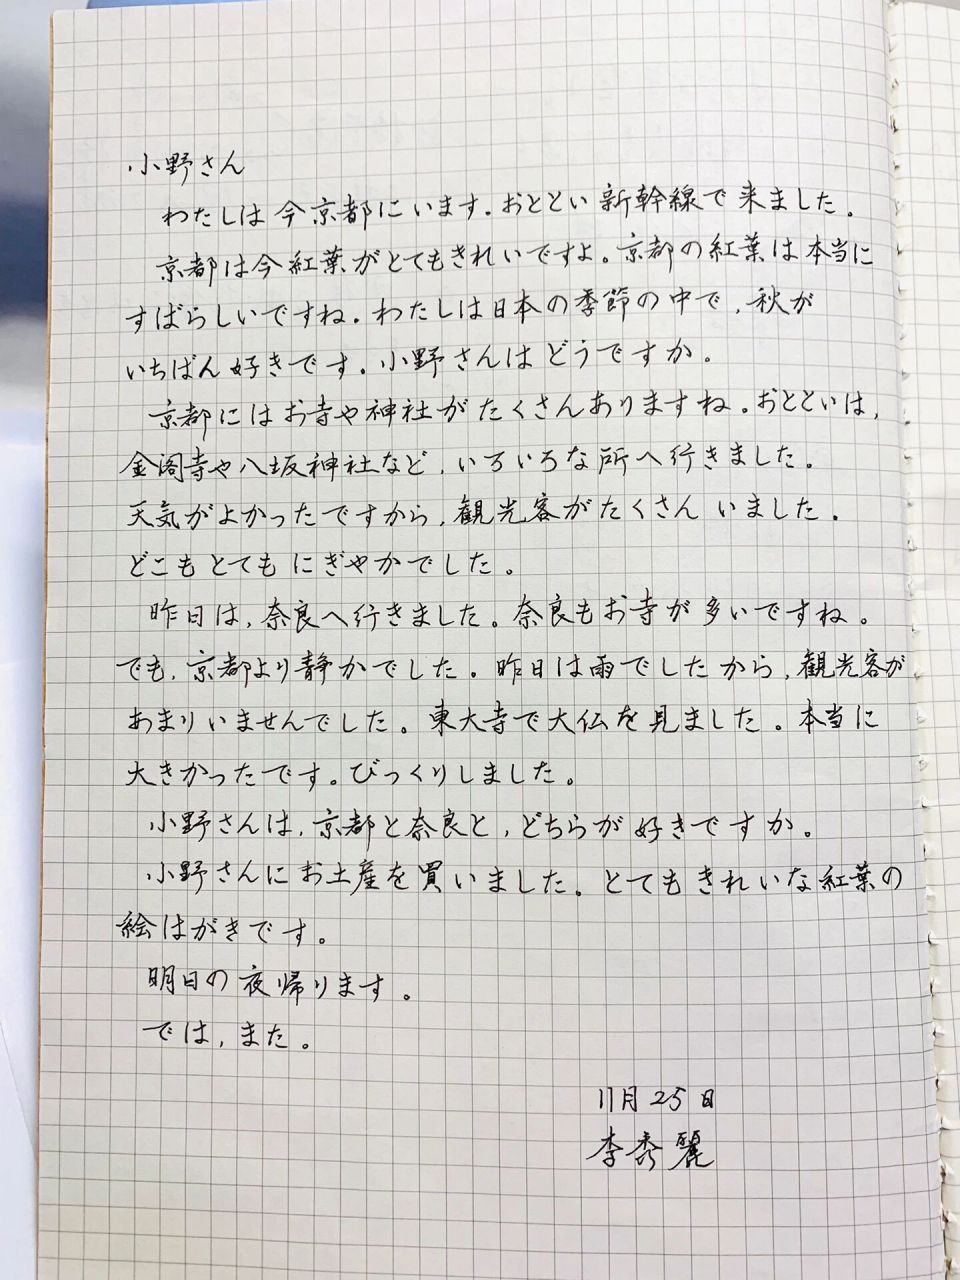 小野さん
わたしは今京都にいます。おととい新幹線で来ました。
京都は今紅葉がとてもきれいですよ。京都の紅葉は本当に
すばらしいですね。わたしは日本の季節の中で,秋が
いちばん好きです。小野さんはどうですか。
京都にはお寺や神社がたくさんありますね。おとといは,
金閣寺や八坂神社など,いろいろな所へ行きました。
天気がよかったですから,観光客がたくさんいました。
どこもとてもにぎやかでした。
昨日は,奈良へ行きました。奈良もお寺が多いですね。
でも,京都より静かでした。昨日は雨でしたから,観光客が
あまりいませんでした。東大寺で大仏を見ました。本当に
大きかったです。びっくりしました。
小野さんは,京都と奈良と,どちらが好きですか。
小野さんにお土産を買いました。とてもきれいな紅葉の
絵はがきです。
明日の夜帰ります。
では,また。
11月25日
李秀麗